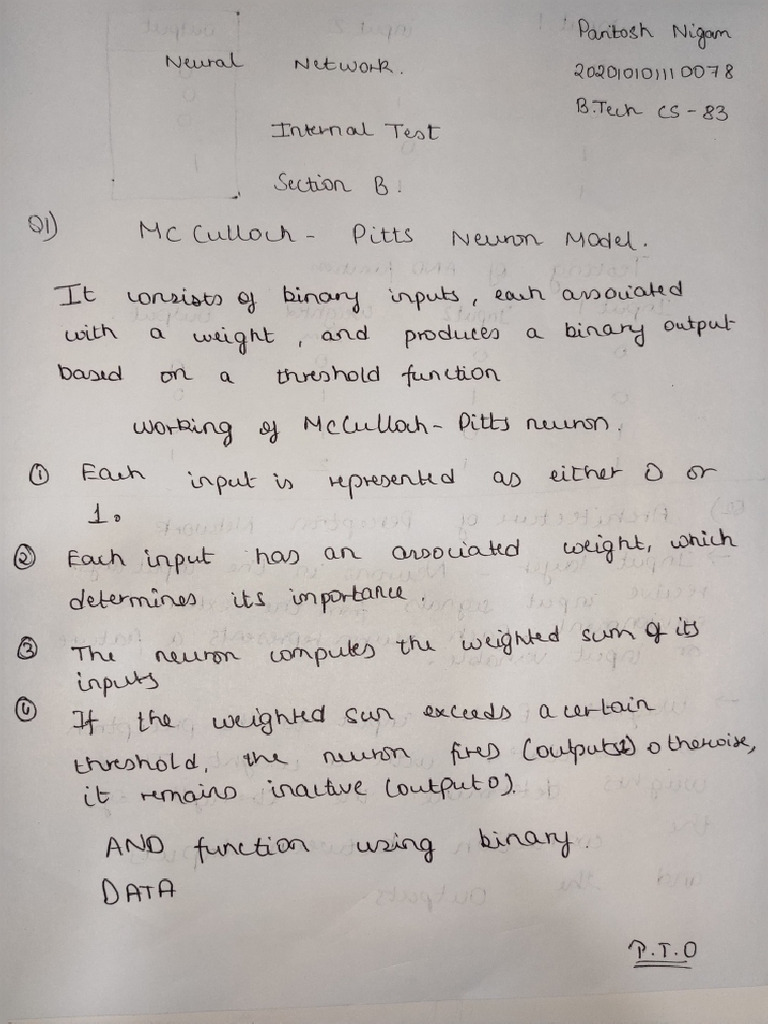 Paritosh Nigam
Neural Network.
202010101110078
B.Tech CS-83
Internal Test
Section B:
Q1) McCulloch - Pitts Neuron Model.
It consists of binary inputs, each associated
with a weight, and produces a binary output
based on a threshold function
working of McCulloch - Pitts neuron.
① Each input is represented as either 0 or
1.
② Each input has an associated weight, which
determines its importance.
③ The neuron computes the weighted sum of its
inputs
④ If the weighted sum exceeds a certain
threshold, the neuron fires (outputs 1) otherwise,
it remains inactive (output 0).
AND function using binary.
DATA
P.T.O